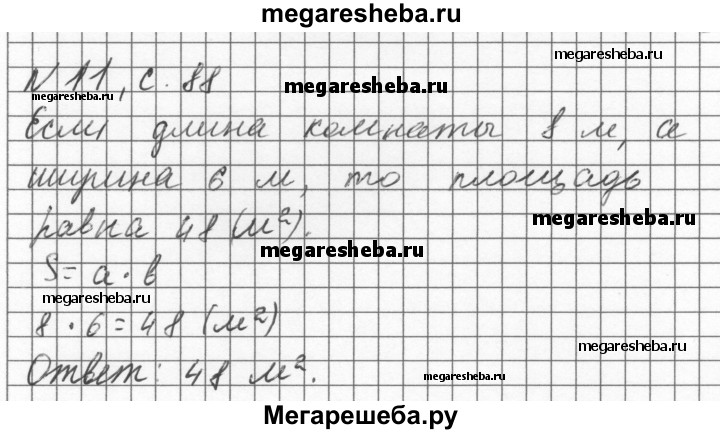 megaresheba.ru
megaresheba.ru
N 11, с. 88
megaresheba.ru
megaresheba.ru
Если длина комнаты 8 м, а
ширина 6 м, то площадь
равна 48 (м²).
megaresheba.ru
megaresheba.ru
S = a · b
megaresheba.ru
8 · 6 = 48 (м²)
Ответ: 48 м².
megaresheba.ru
Мегарешеба.ру